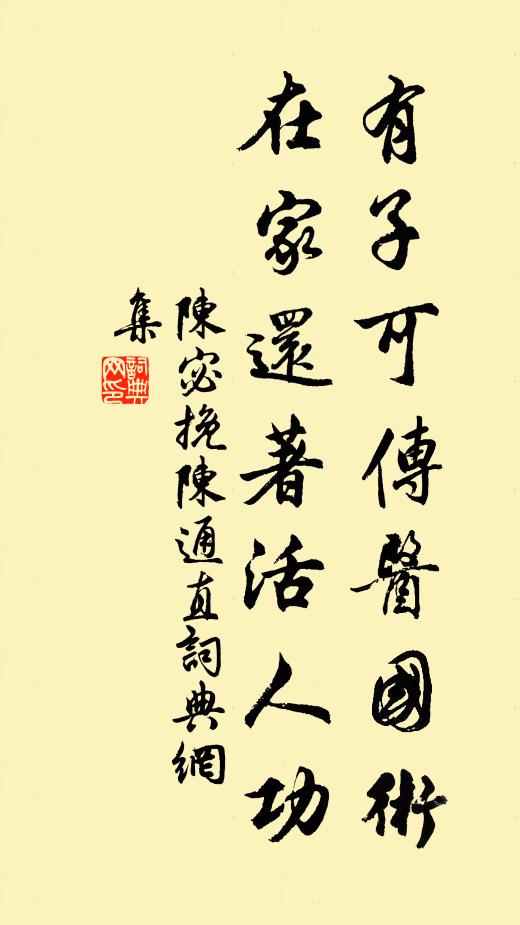 有子可傳醫國術
在家還著活人功
陳宓挽陳通直詞典網
集
詞典网印